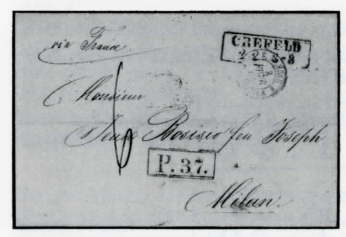 via France
CREFELD
Monsieur
Jean Bosisio feu Joseph
P.37.
Milan.